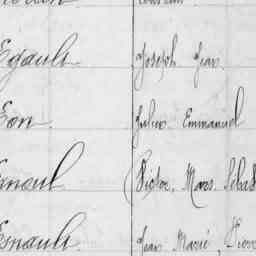 Egault Joseph Jean
Eon Julien Emmanuel
Victor, Mars, Sébas
Esnault Jean Marie, Pierre